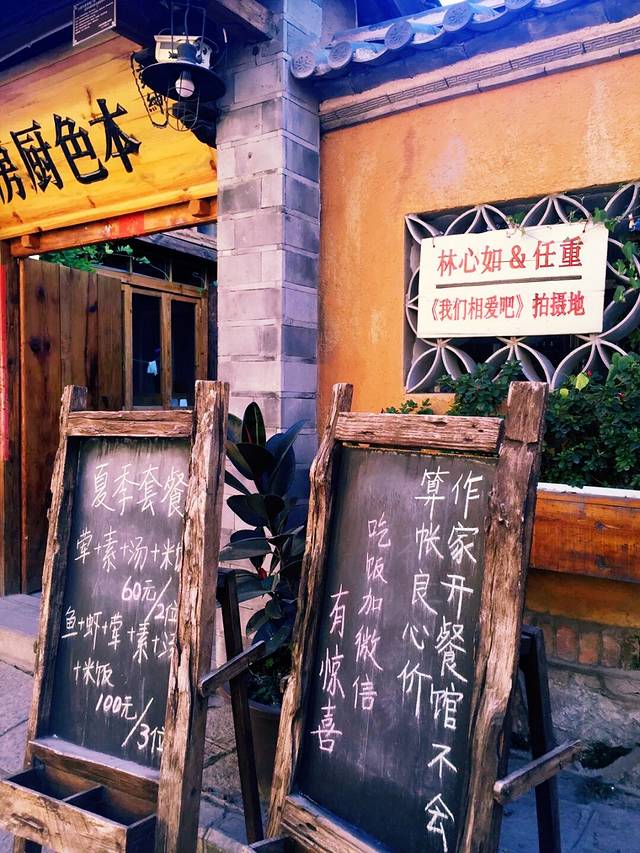 本色厨房
林心如&任重
《我们相爱吧》拍摄地
夏季套餐
荤+素+汤+米
60元/2位
鱼+虾+荤+素+汤
+米饭
100元/3位
作家开餐馆不会
算帐良心价
吃饭加微信
有惊喜